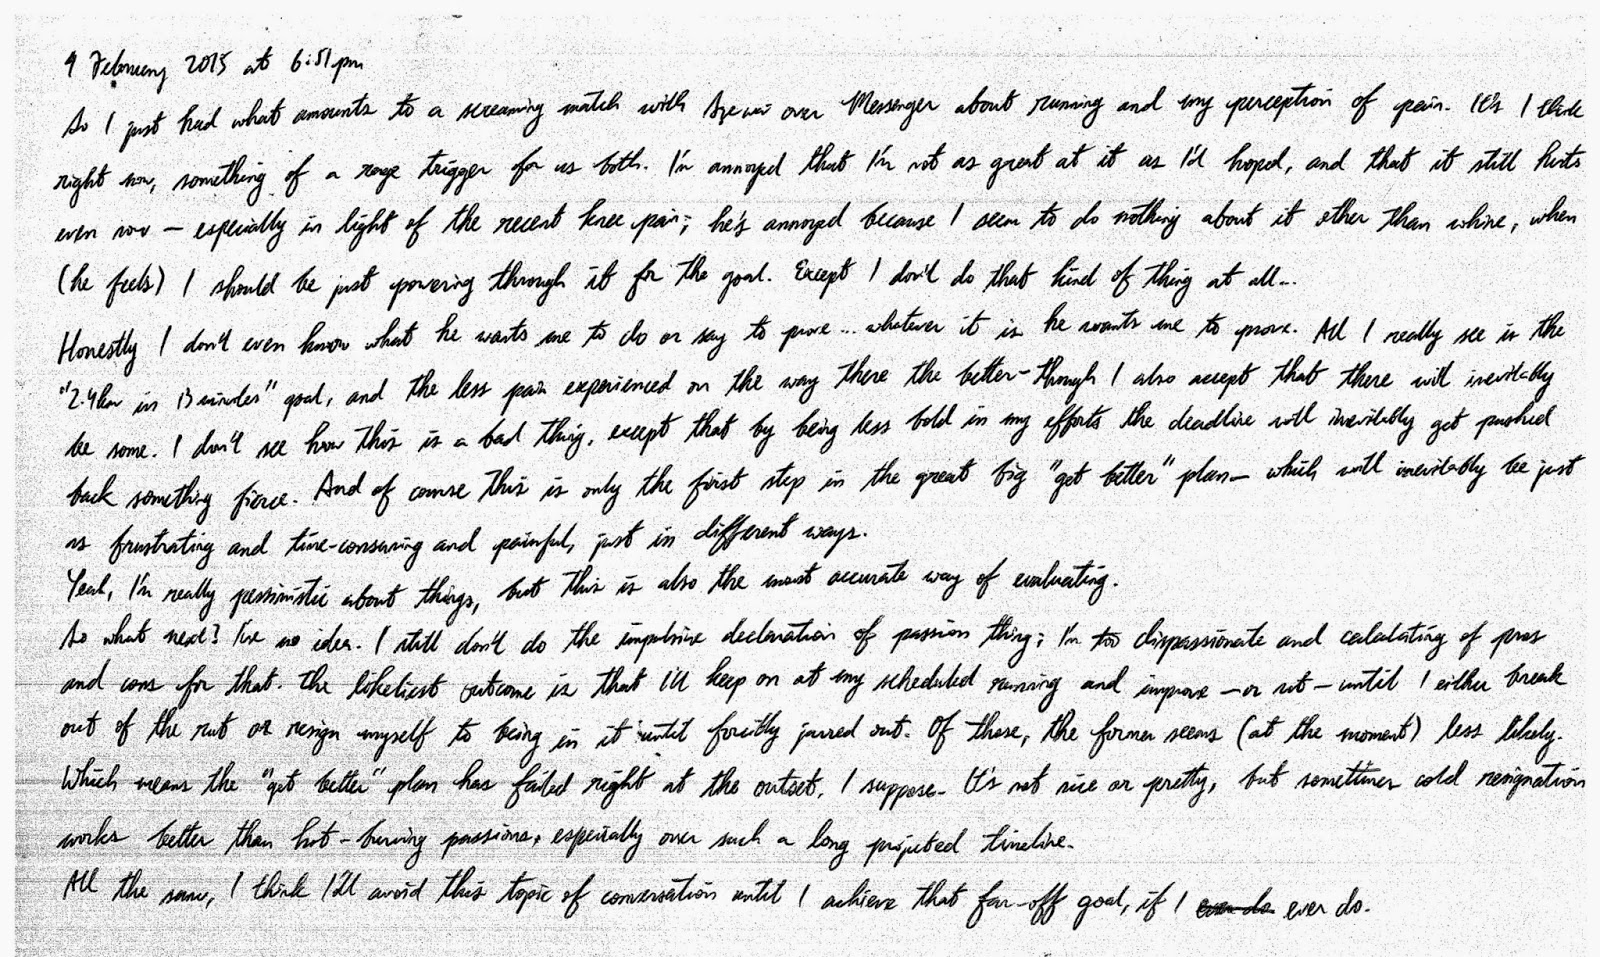 9 February 2015 at 6:51pm
So I just had what amounts to a screaming match with over Messenger about running and my perception of pain. It's I think
right now, something of a rage trigger for us both. I'm annoyed that I'm not as great at it as I'd hoped, and that it still hurts
even now – especially in light of the recent knee pain; he's annoyed because I seem to do nothing about it other than whine, when
(he feels) I should be just powering through it for the goal. Except I don't do that kind of thing at all...
Honestly I don't even know what he wants me to do or say to prove ... whatever it is he wants me to prove. All I really see is the
"2.4km in 13 minutes" goal, and the less pain experienced on the way there the better – though I also accept that there will inevitably
be some. I don't see how this is a bad thing, except that by being less bold in my efforts the deadline will inevitably get pushed
back something fierce. And of course this is only the first step in the great big "get better" plan – which will inevitably be just
as frustrating and time-consuming and painful, just in different ways.
Yeah, I'm really pessimistic about things, but this is also the most accurate way of evaluating.
So what next? I've no idea. I still don't do the impulsive declaration of passion thing; I'm too dispassionate and calculating of pros
and cons for that. The likeliest outcome is that I'll keep on at my scheduled running and improve – or not – until I either break
out of the rut or resign myself to being in it until forcibly jarred out. Of these, the former seems (at the moment) less likely.
Which means the "get better" plan has failed right at the outset, I suppose. It's not nice or pretty, but sometimes cold resignation
works better than hot-burning passions, especially over such a long projected timeline.
All the same, I think I'll avoid this topic of conversation until I achieve that far-off goal, if I ever do ever do.